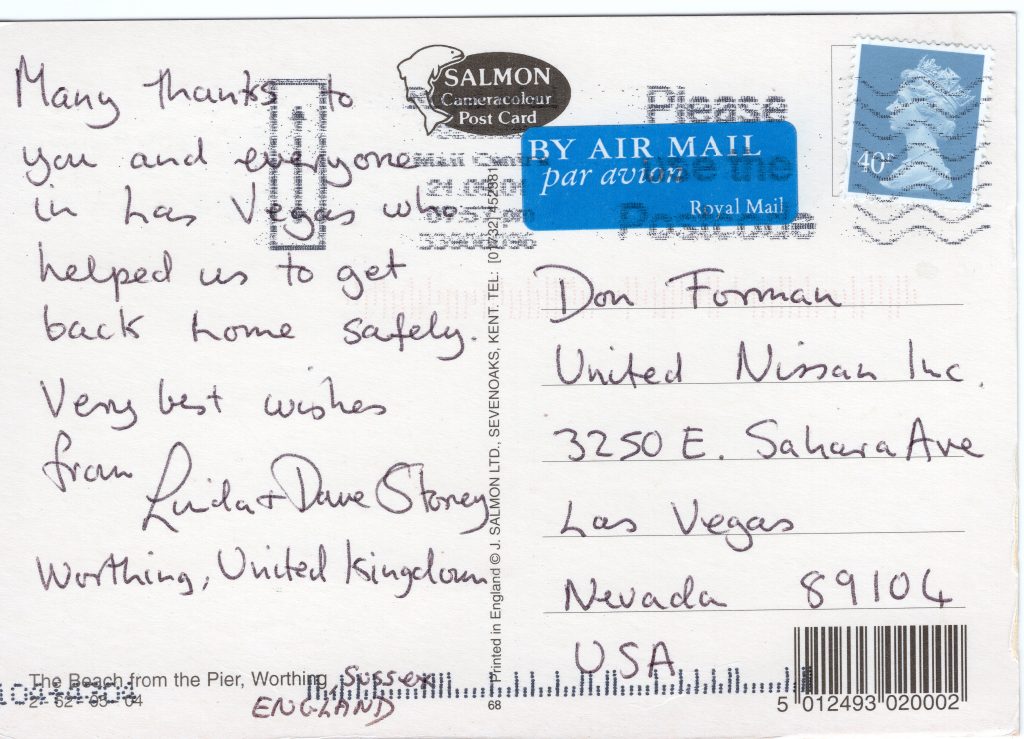 Many thanks to
you and everyone
in Las Vegas who
helped us to get
back home safely.
Very best wishes
from
Linda + Dave Storey
Worthing, United Kingdom
The Beach from the Pier, Worthing, Sussex
ENGLAND
2-52-05-04
SALMON
Cameracolour
Post Card
Printed in England © J. SALMON LTD., SEVENOAKS, KENT. TEL: [01732] 452381
68
Mail Centre
Please
use the
Postcode
BY AIR MAIL
par avion
Royal Mail
40P
Don Forman
United Nissan Inc.
3250 E. Sahara Ave
Las Vegas
Nevada 89104
USA
5 012493 020002